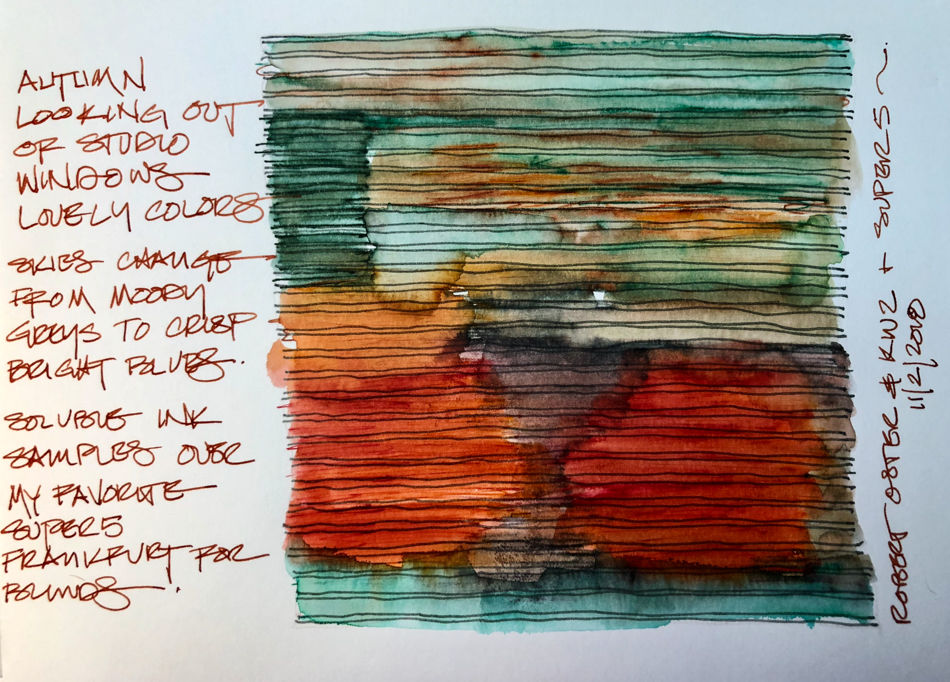 AUTUMN
LOOKING OUT
OF STUDIO
WINDOWS
LOVELY COLORS
SKIES CHANGE
FROM MOODY
GREYS TO CRISP
BRIGHT BLUES.
SOLUBLE INK
SAMPLES OVER
MY FAVORITE
SUPER5
FRANKFURT FOR
BLINDS!
ROBERT OSTER & KWZ + SUPER5 ~
11/2/2018